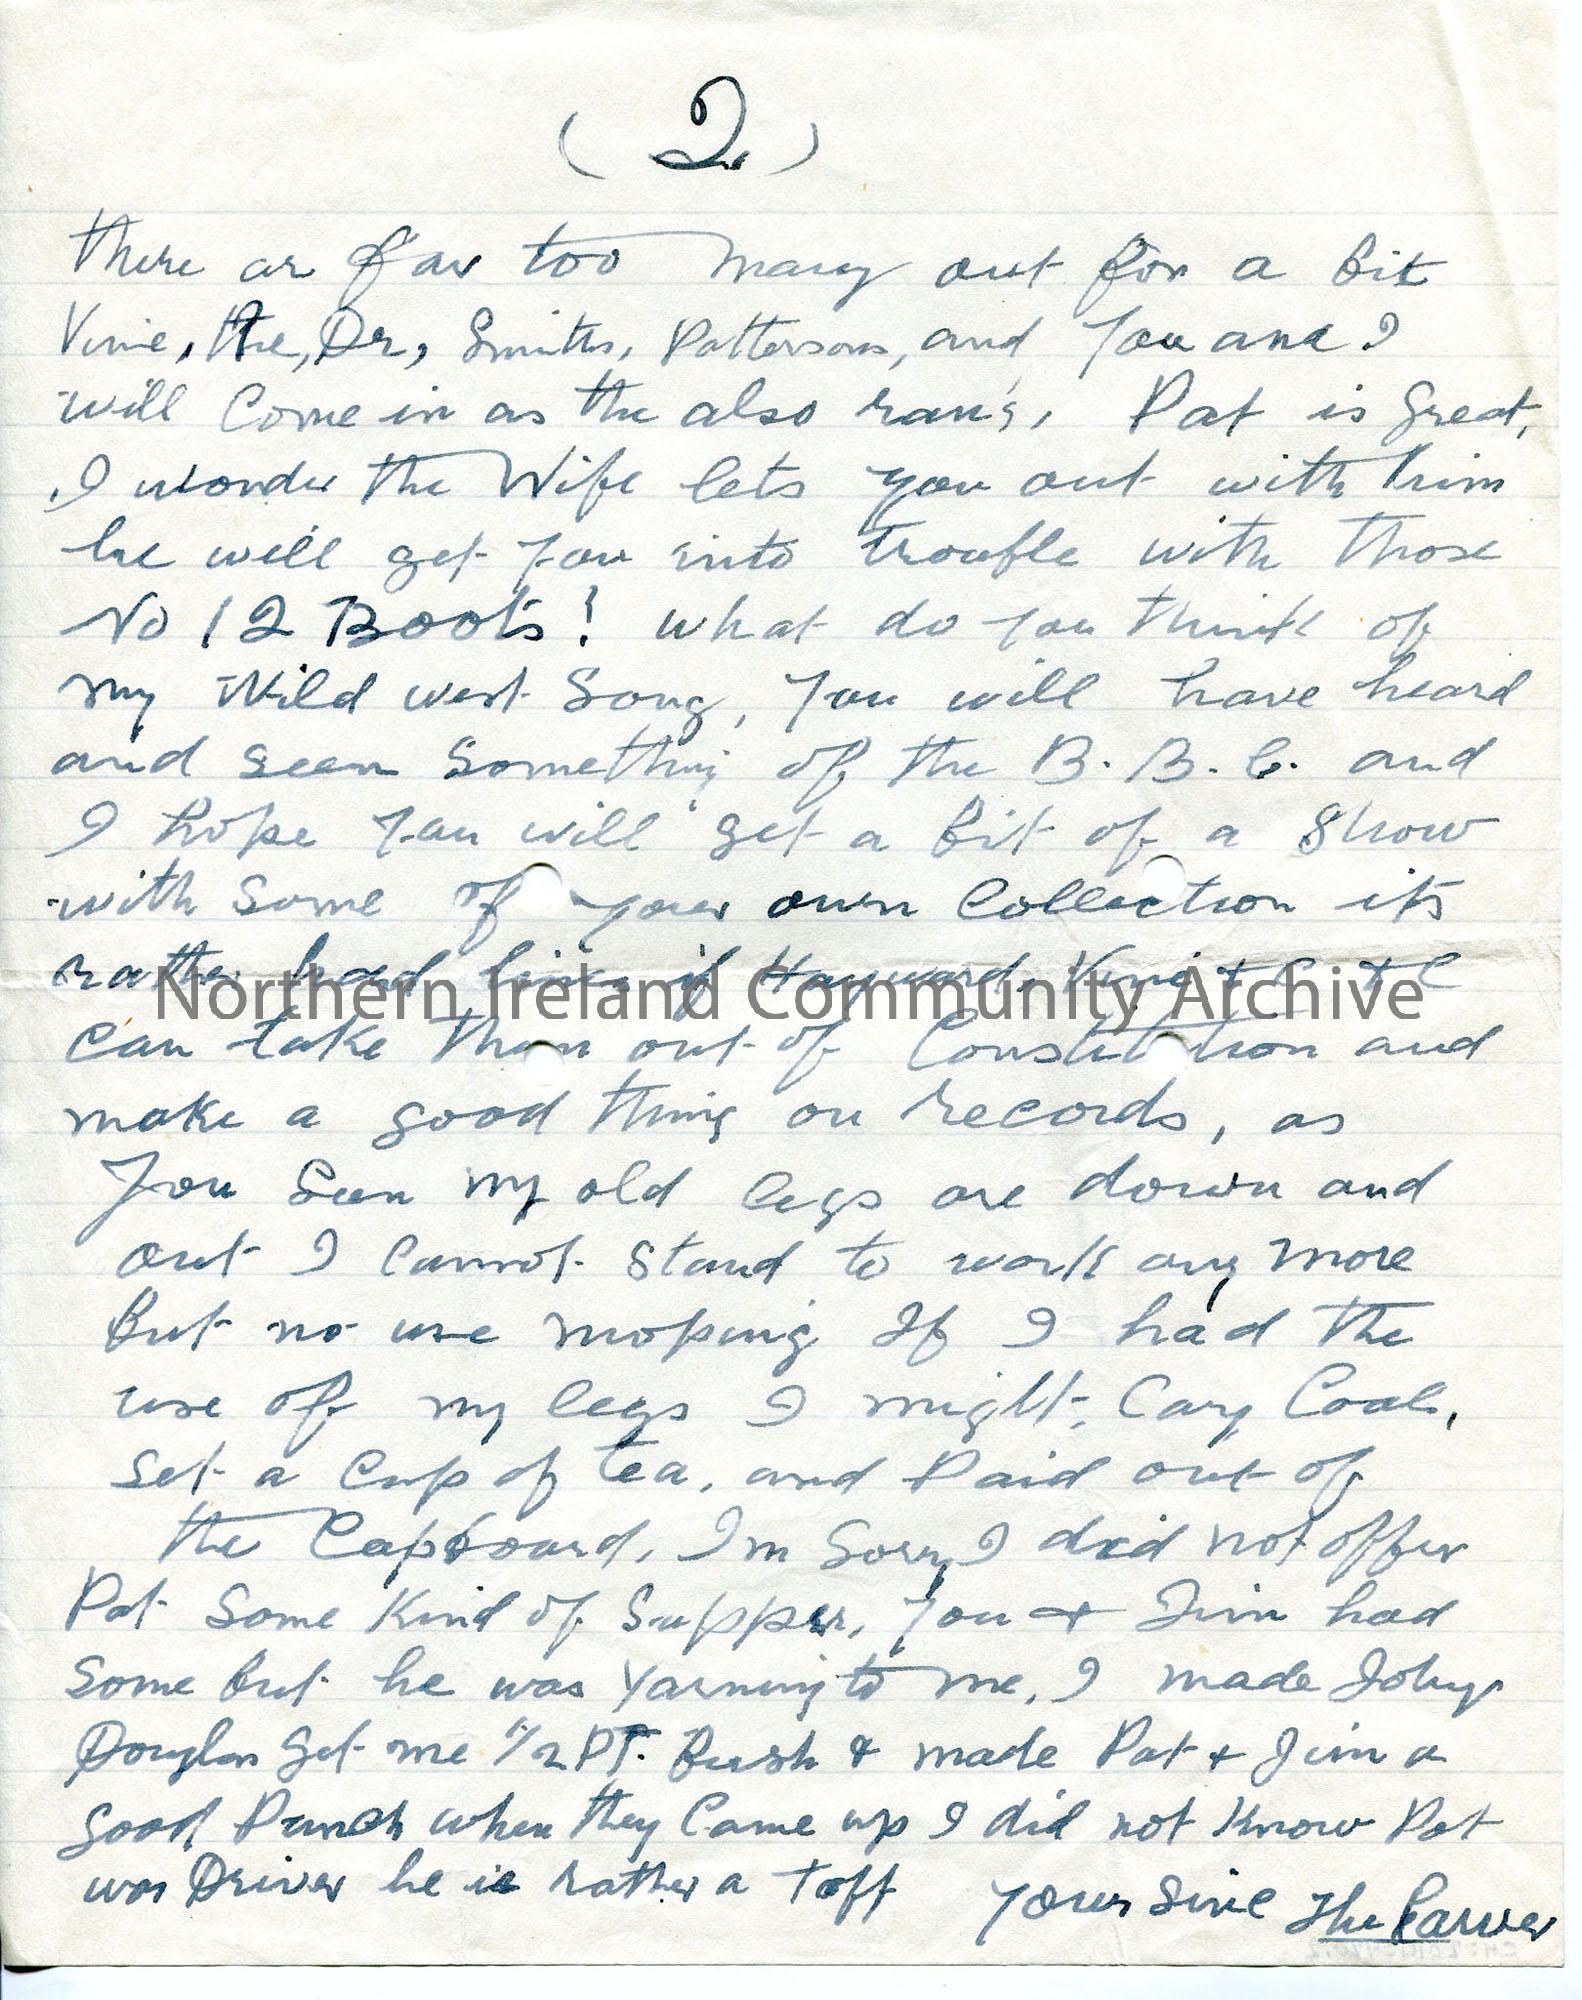 ( 2 )
there ar far too many out for a bit
Vine, the, Dr, Smiths, Pattersons, and you and I
will Come in as the also ran's, Pat is great,
I wonder the Wife lets you out with him
he will get you into trouble with those
No 12 Boots! what do you think of
my Wild west Song, you will have heard
and seen something of the B.B.C. and
I hope you will get a bit of a show
with some of your own Collection its
rather hard lines if Hayward, Vine + C + C
Northern Ireland Community Archive
can take them out of Constitution and
make a good thing on records, as
you seen my old legs are down and
out I cannot stand to work any more
But no use moping If I had the
use of my legs I might Cary Coal,
Set a Cup of tea, and Raid out of
the Capboard, Im Sorry I did not offer
Pat some kind of Supper, you + Jim had
some but he was Yarning to me, I made Johny
Douglas get me 1/2 PT. Bush & made Pat + Jim a
good Punch when they Came up I did not Know Pat
was Driver he is rather a toff yours Sine The Carver